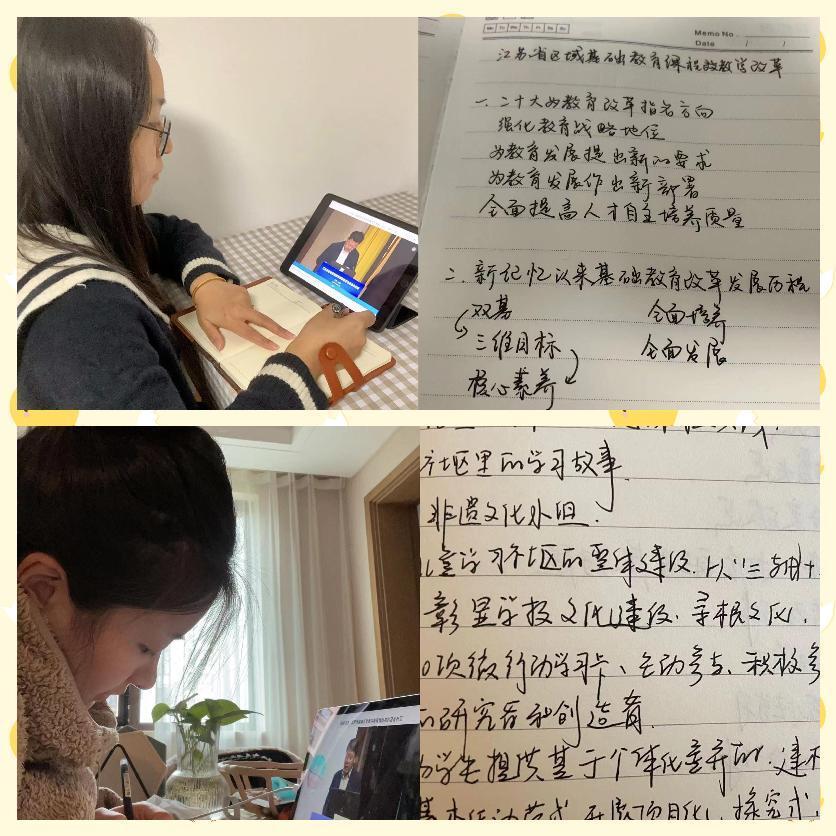 Mo Tu We Th Fr Sa Su
Memo No.
Date / /
江苏省区域基础教育课程改教学改革
一、二十大为教育改革指名方向
强化教育战略地位
为教育发展提出新的要求
为教育发展作出新部署
全面提高人才自主培养质量
二、新记忆以来基础教育改革发展历程
双基 全面培养
三维目标 全面发展
核心素养
社区里的学习故事
非遗文化小组.
儿童学习社区的整体建设.从“三
彰显学校文化建设.寻根文化.
0项微行动学习卡、主动参与、积极参
的研究者和创造者.
为学生提供基于个体化差异的.建
基本活动范式.开展项目化、探究式.